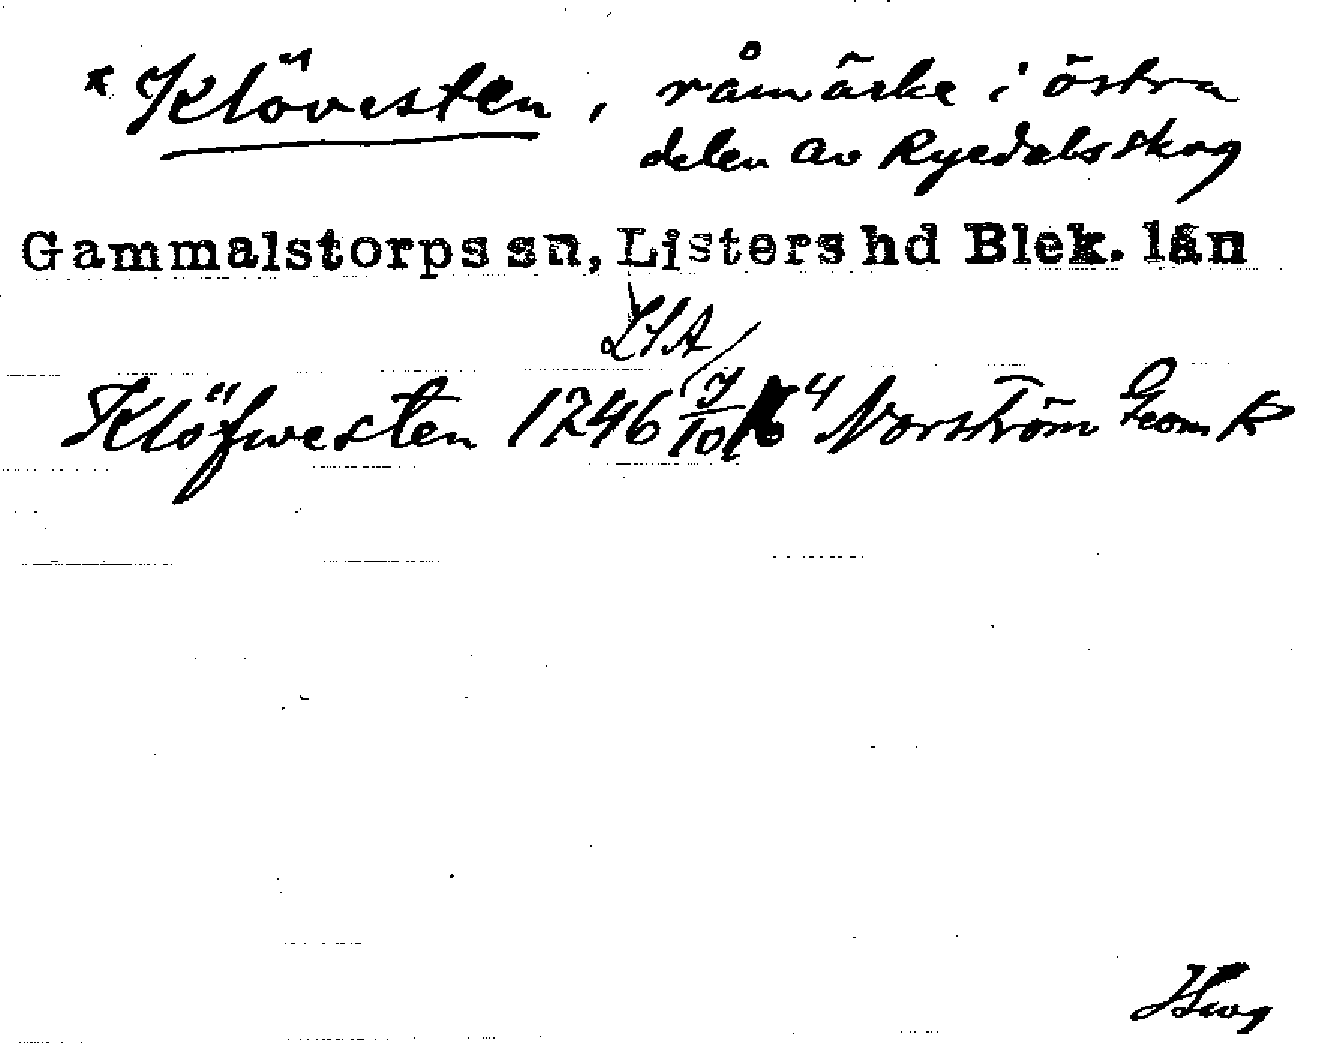 * Klövesten, råmärke i östra
delen av Ryedalsskog
Gammalstorps sn, Listers hd Blek. län
LSA
Klöfwesten 1246 Norström Geom K